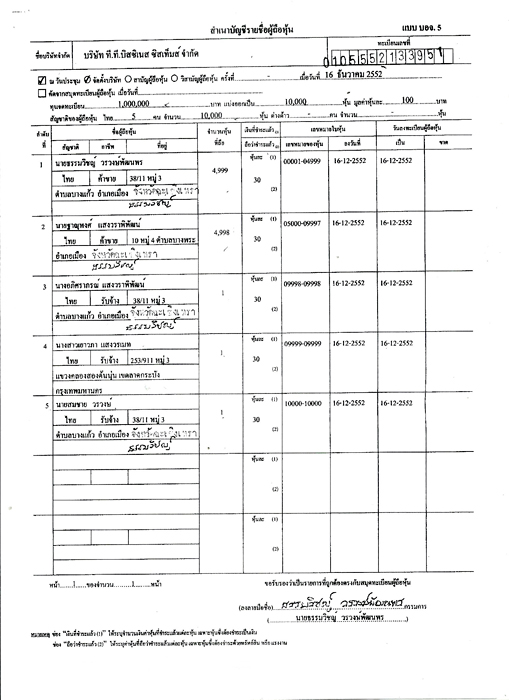 สำเนาบัญชีรายชื่อผู้ถือหุ้น
แบบ บอจ. 5
ทะเบียนเลขที่
ชื่อบริษัทจำกัด บริษัท ที.ที.บิสซิเนส ซิสเท็มส์ จำกัด
0105552133951
ณ วันประชุม จัดตั้งบริษัท สามัญผู้ถือหุ้น วิสามัญผู้ถือหุ้น ครั้งที่ เมื่อวันที่ 16 ธันวาคม 2552
คัดจากสมุดทะเบียนผู้ถือหุ้น เมื่อวันที่
ทุนจดทะเบียน 1,000,000 บาท แบ่งออกเป็น 10,000 หุ้น มูลค่าหุ้นละ 100 บาท
สัญชาติของผู้ถือหุ้น ไทย 5 คน จำนวน 10,000 หุ้น ต่างด้าว คน จำนวน หุ้น
ลำดับที่ ชื่อผู้ถือหุ้น จำนวนหุ้นที่ถือ เงินที่ชำระแล้ว (1) เลขหมายใบหุ้น วันลงทะเบียนผู้ถือหุ้น
สัญชาติ อาชีพ ที่อยู่ ถือว่าชำระแล้ว (2) เลขหมายของหุ้น ลงวันที่ เป็น ขาด
1 นายธรรมวิชญ์ วรวงษ์พัฒนพร 4,999 หุ้นละ (1) 00001-04999 16-12-2552 16-12-2552
ไทย ค้าขาย 38/11 หมู่ 3 30
ตำบลบางแก้ว อำเภอเมือง จังหวัดฉะเชิงเทรา (2)
ธรรมวิชญ์
2 แสงวราพิพัฒน์ 4,998 หุ้นละ (1) 05000-09997 16-12-2552 16-12-2552
ไทย ค้าขาย 10 หมู่ 4 ตำบลบางพระ 30
อำเภอเมือง จังหวัดฉะเชิงเทรา (2)
ธรรมวิชญ์
3 แสงวราพิพัฒน์ 1 หุ้นละ (1) 09998-09998 16-12-2552 16-12-2552
ไทย รับจ้าง 38/11 หมู่ 3 30
ตำบลบางแก้ว อำเภอเมือง จังหวัดฉะเชิงเทรา (2)
ธรรมวิชญ์
4 นางสาวเยาวภา แสงวรเมท 1 หุ้นละ (1) 09999-09999 16-12-2552 16-12-2552
ไทย รับจ้าง 253/911 หมู่ 3 30
แขวงคลองสองต้นนุ่น เขตลาดกระบัง (2)
กรุงเทพมหานคร
5 นายสมชาย วรวงษ์ 1 หุ้นละ (1) 10000-10000 16-12-2552 16-12-2552
ไทย รับจ้าง 38/11 หมู่ 3 30
ตำบลบางแก้ว อำเภอเมือง จังหวัดฉะเชิงเทรา (2)
ธรรมวิชญ์
หุ้นละ (1)
(2)
หุ้นละ (1)
(2)
หน้า 1 ของจำนวน 1 หน้า
ขอรับรองว่าเป็นรายการที่ถูกต้องตรงกับสมุดทะเบียนผู้ถือหุ้น
(ลงลายมือชื่อ) ธรรมวิชญ์ วรวงษ์พัฒนพร กรรมการ
( นายธรรมวิชญ์ วรวงษ์พัฒนพร )
หมายเหตุ ช่อง "เงินที่ชำระแล้ว (1)" ให้ระบุจำนวนเงินค่าหุ้นที่ชำระแล้วแต่ละหุ้น เฉพาะหุ้นซึ่งต้องชำระเป็นเงิน
ช่อง "ถือว่าชำระแล้ว (2)" ให้ระบุค่าหุ้นที่ถือว่าชำระแล้วแต่ละหุ้น เฉพาะหุ้นซึ่งต้องชำระด้วยทรัพย์สิน หรือ แรงงาน